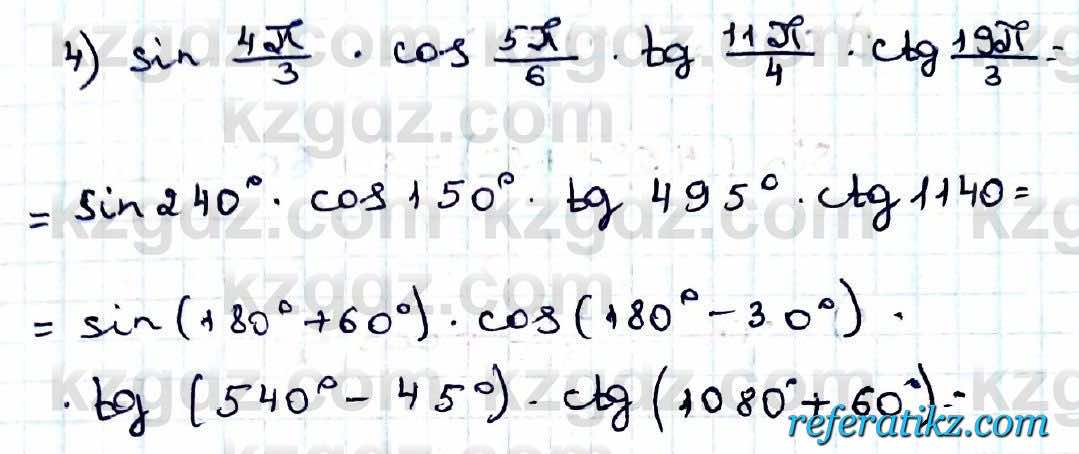 4) sin 4π/3 · cos 5π/6 · tg 11π/4 · ctg 19π/3 =
= sin 240° · cos 150° · tg 495° · ctg 1140 =
= sin (180° + 60°) · cos (180° - 30°) ·
· tg (540° - 45°) · ctg (1080° + 60°) =
kzgdz.com
referatikz.com